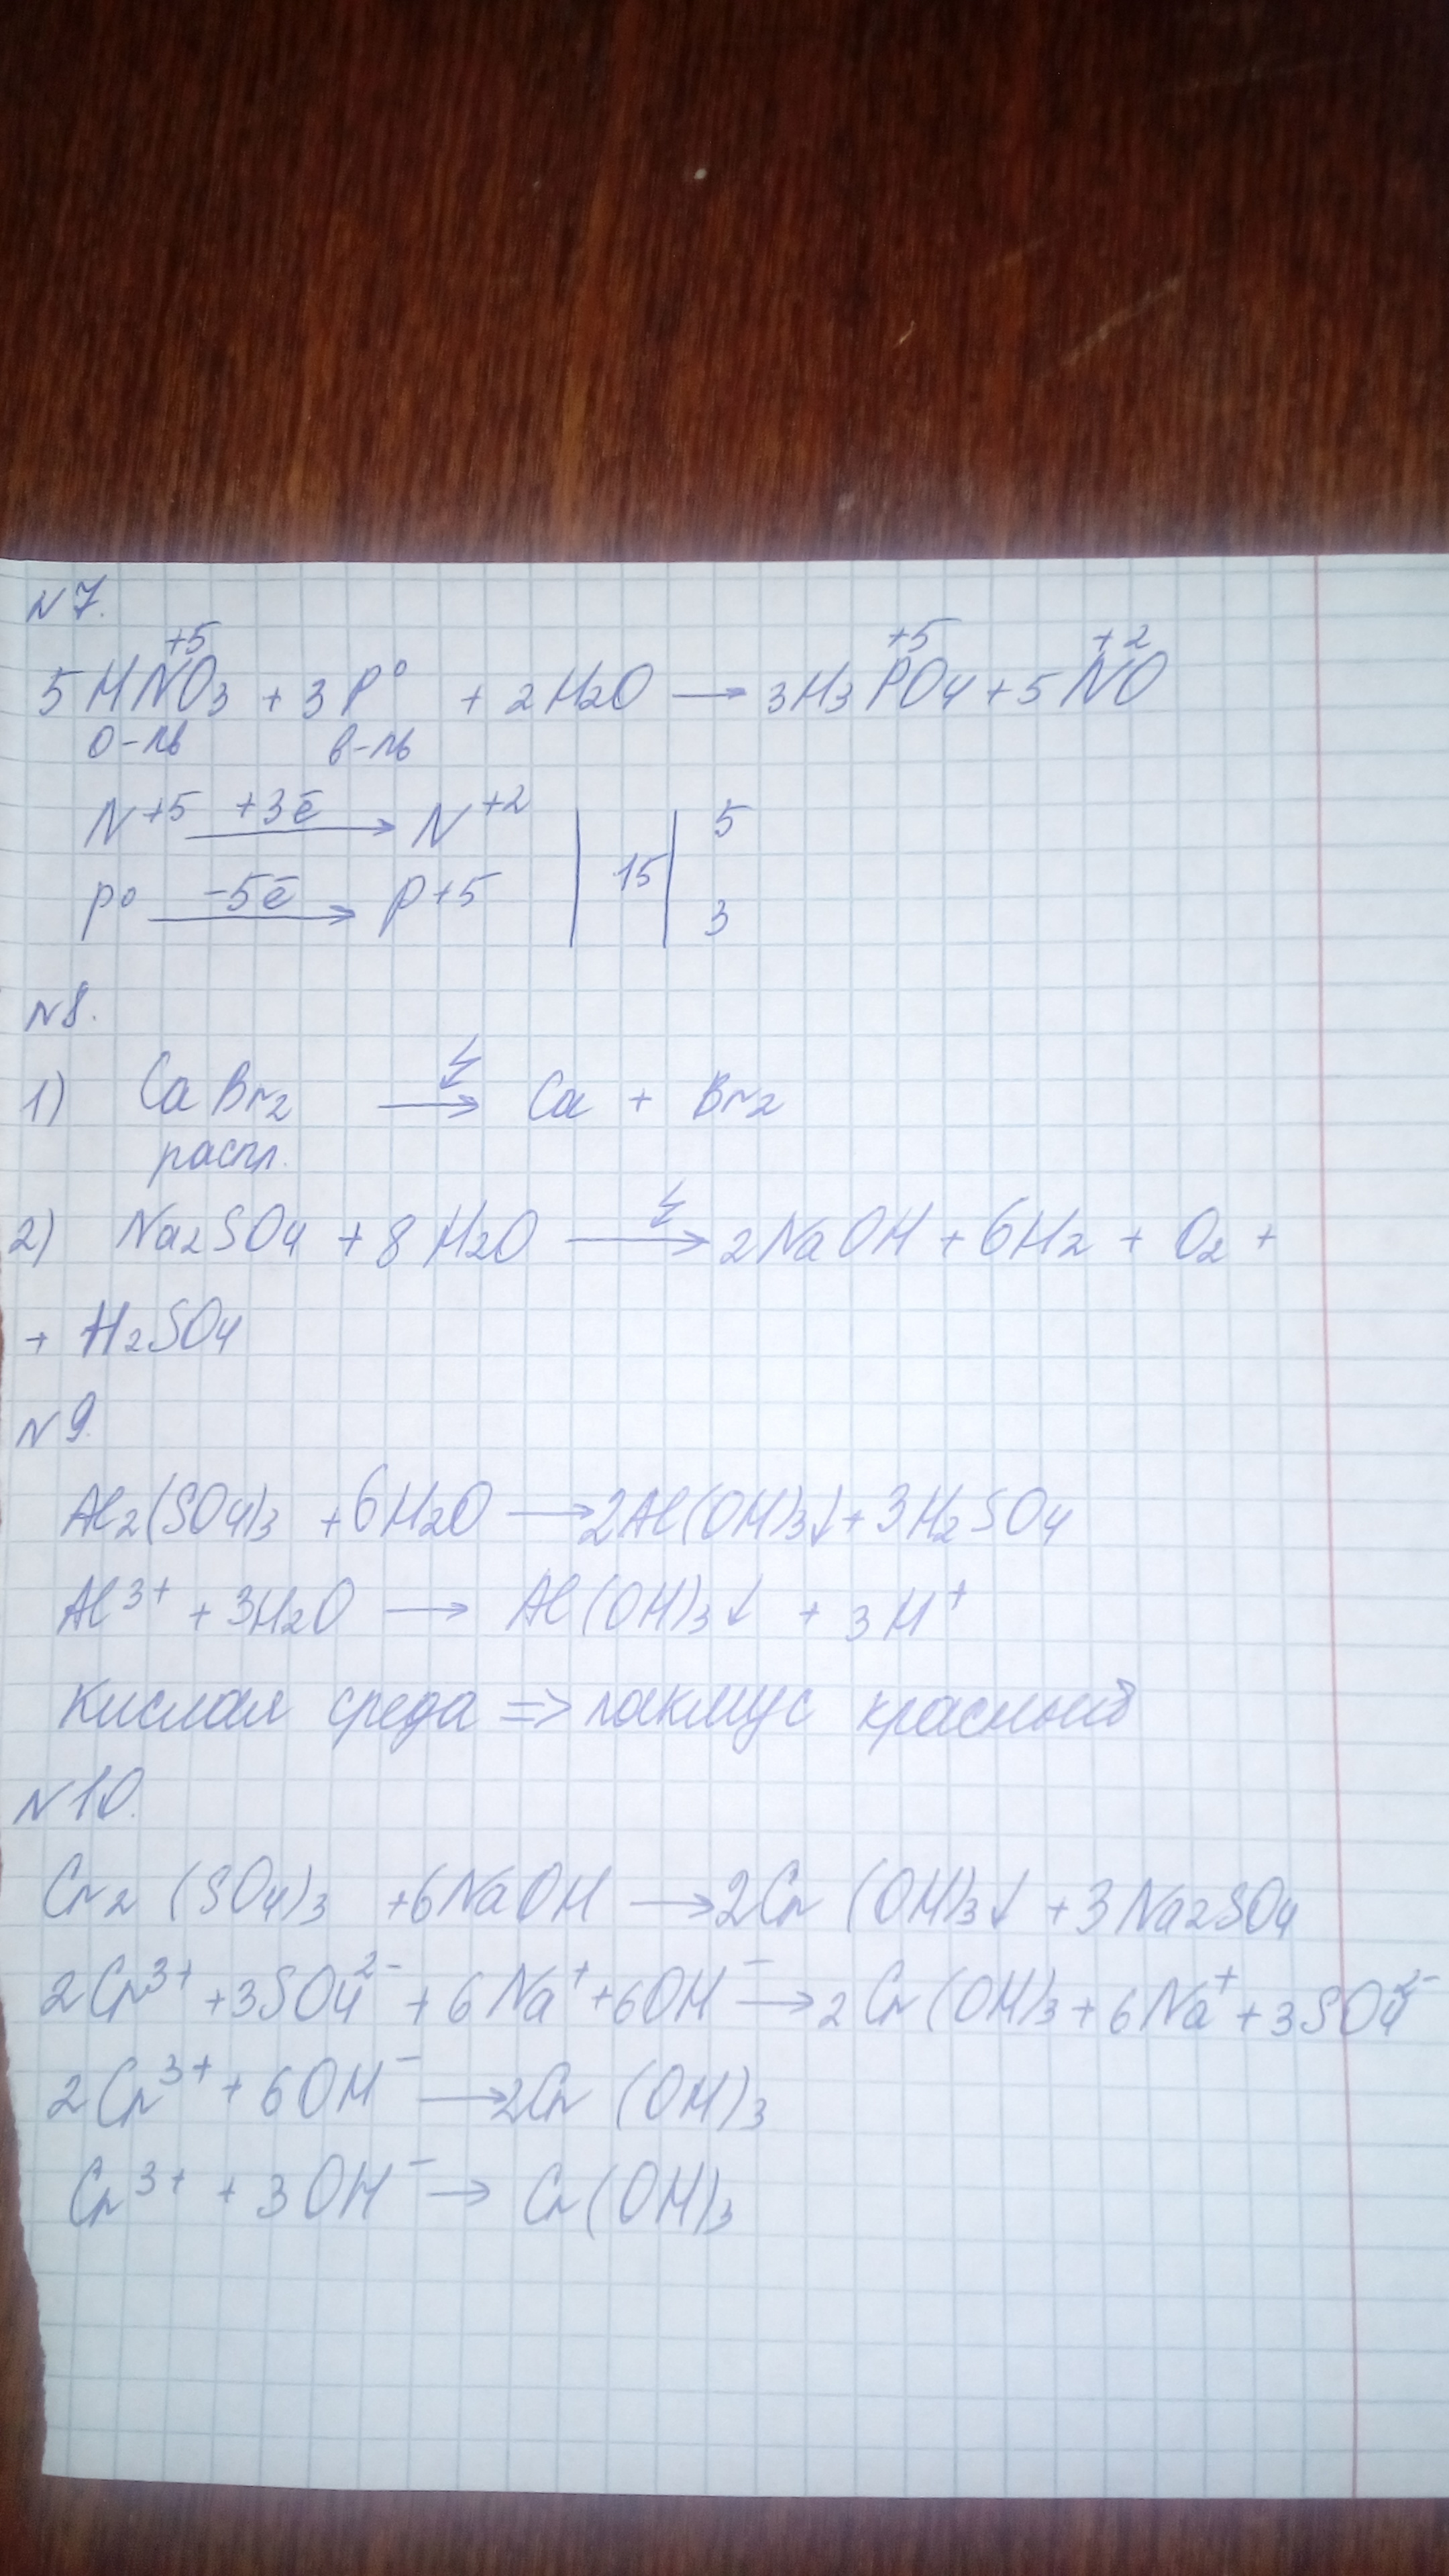 N7.
+5 +5 +2
5HNO3 + 3P⁰ + 2H2O → 3H3PO4 + 5NO
о-ль в-ль
N+5 +3ē → N+2 | 15 | 5
P⁰ -5ē → P+5 | | 3
N8.
1) CaBr2 → Ca + Br2
распл.
2) Na2SO4 + 8H2O → 2NaOH + 6H2 + O2 +
+ H2SO4
N9.
Al2(SO4)3 + 6H2O → 2Al(OH)3↓ + 3H2SO4
Al3+ + 3H2O → Al(OH)3↓ + 3H+
Кислая среда => лакмус красный
N10.
Cr2(SO4)3 + 6NaOH → 2Cr(OH)3↓ + 3Na2SO4
2Cr3+ + 3SO4 2- + 6Na+ + 6OH- → 2Cr(OH)3 + 6Na+ + 3SO4 2-
2Cr3+ + 6OH- → 2Cr(OH)3
Cr3+ + 3OH- → Cr(OH)3